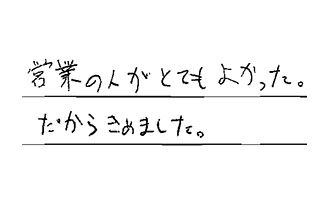 営業の人がとてもよかった。
だからきめました。